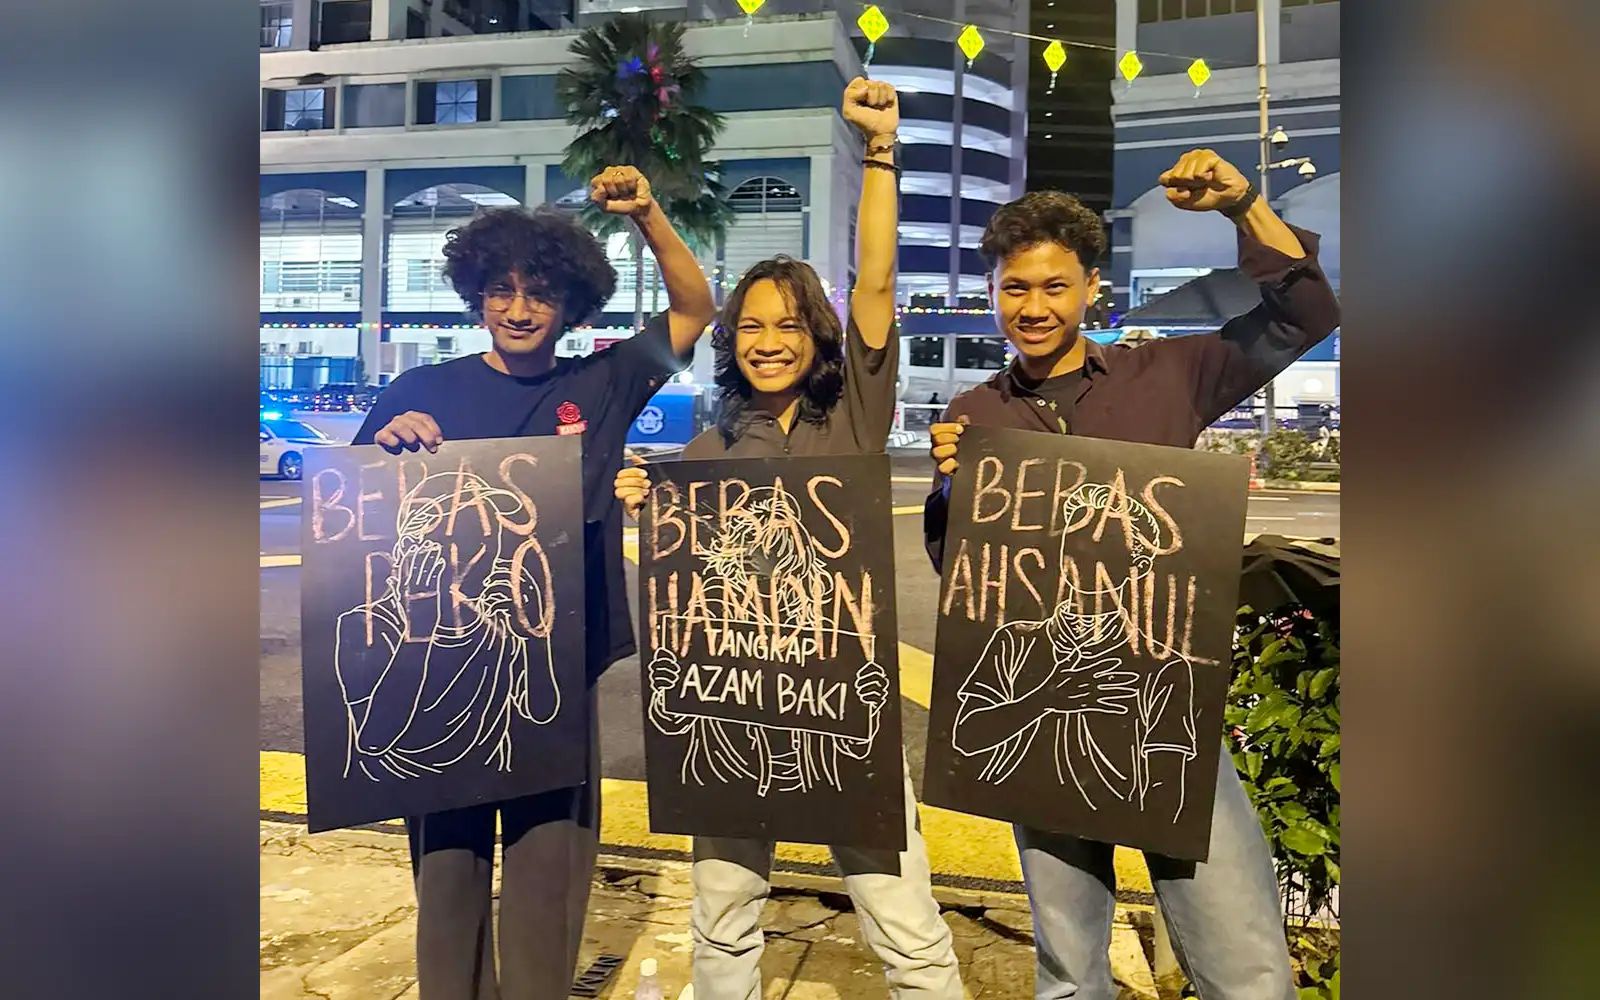 BEBAS
REKO
BEBAS
HAMDIN
TANGKAP
AZAM BAKI
BEBAS
AHSANUL